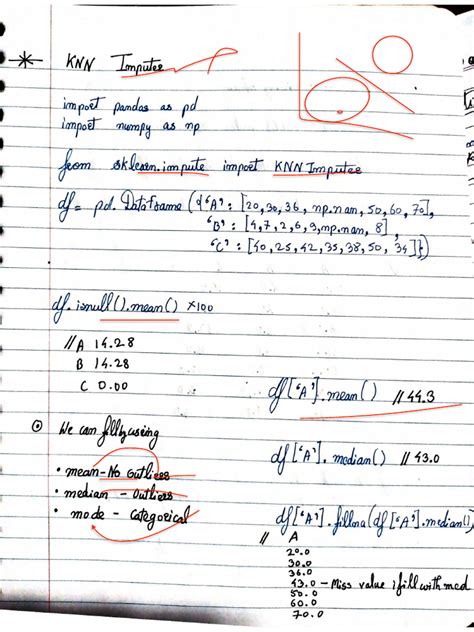 KNN Imputer
import pandas as pd
import numpy as np
from sklearn.impute import KNN Imputer
df = pd.DataFrame ({'A' : [20, 30, 36, np.nan, 50, 60, 70],
'B' : [4, 7, 2, 6, 3, np.nan, 8],
'C' : [40, 25, 42, 35, 38, 50, 34]})
df.isnull().mean() ×100
// A 14.28
B 14.28
C 0.00
df['A'].mean() // 44.3
We can fill by using
• mean - No Outliers
• median - Outliers
• mode - categorical
df['A'].median() // 43.0
df['A'].fillna(df['A'].median()
// A
20.0
30.0
36.0
43.0 - Miss value i fill with med
50.0
60.0
70.0